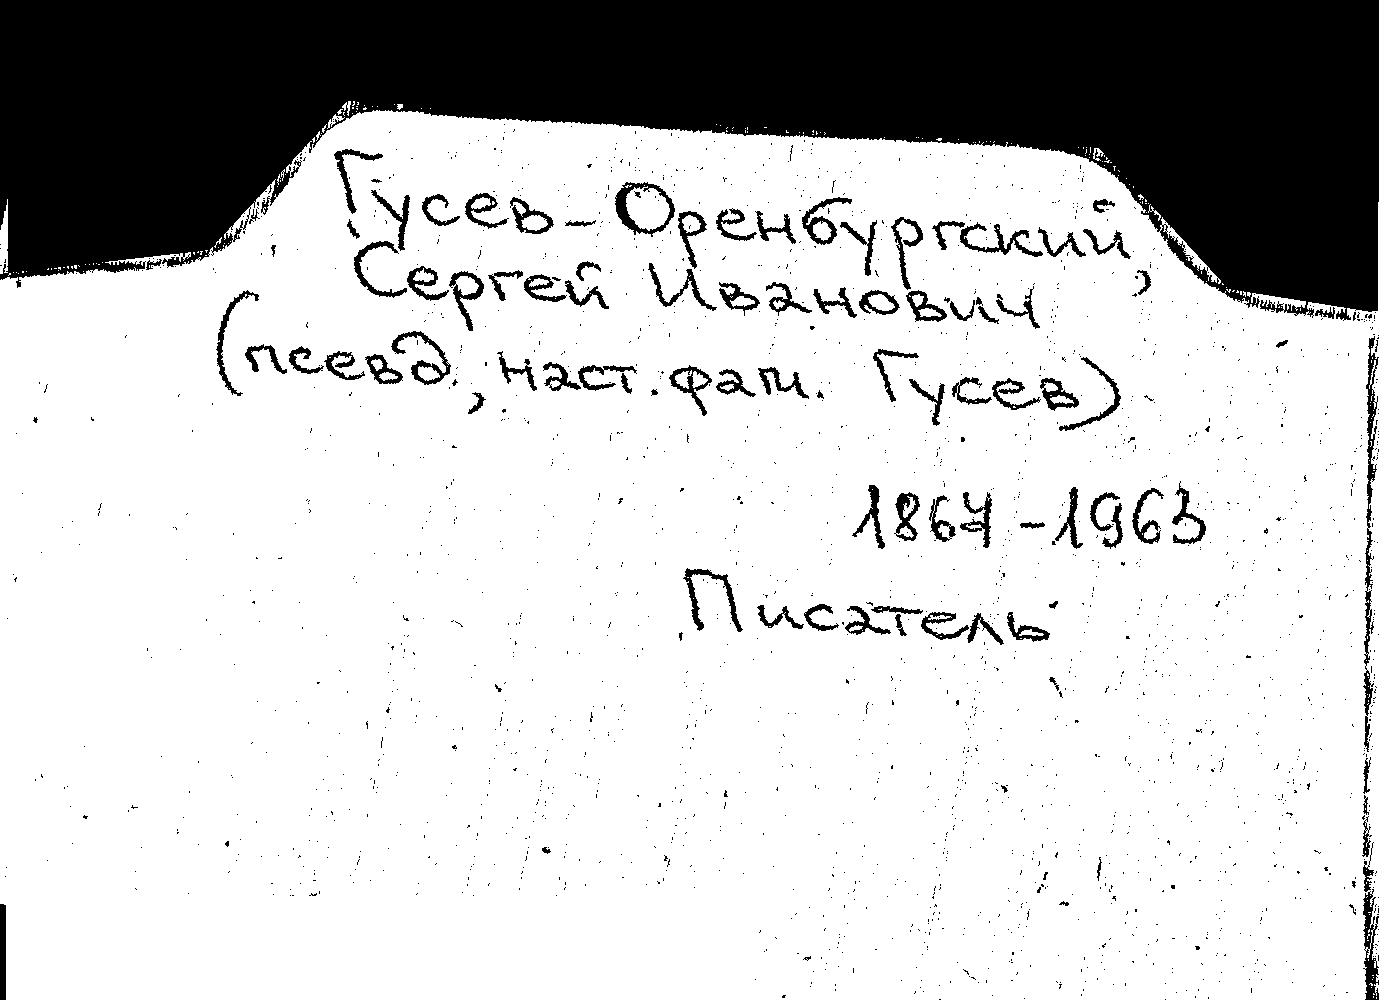 Гусев-Оренбургский,
Сергей Иванович
(псевд., наст. фам. Гусев)
1867-1963
Писатель